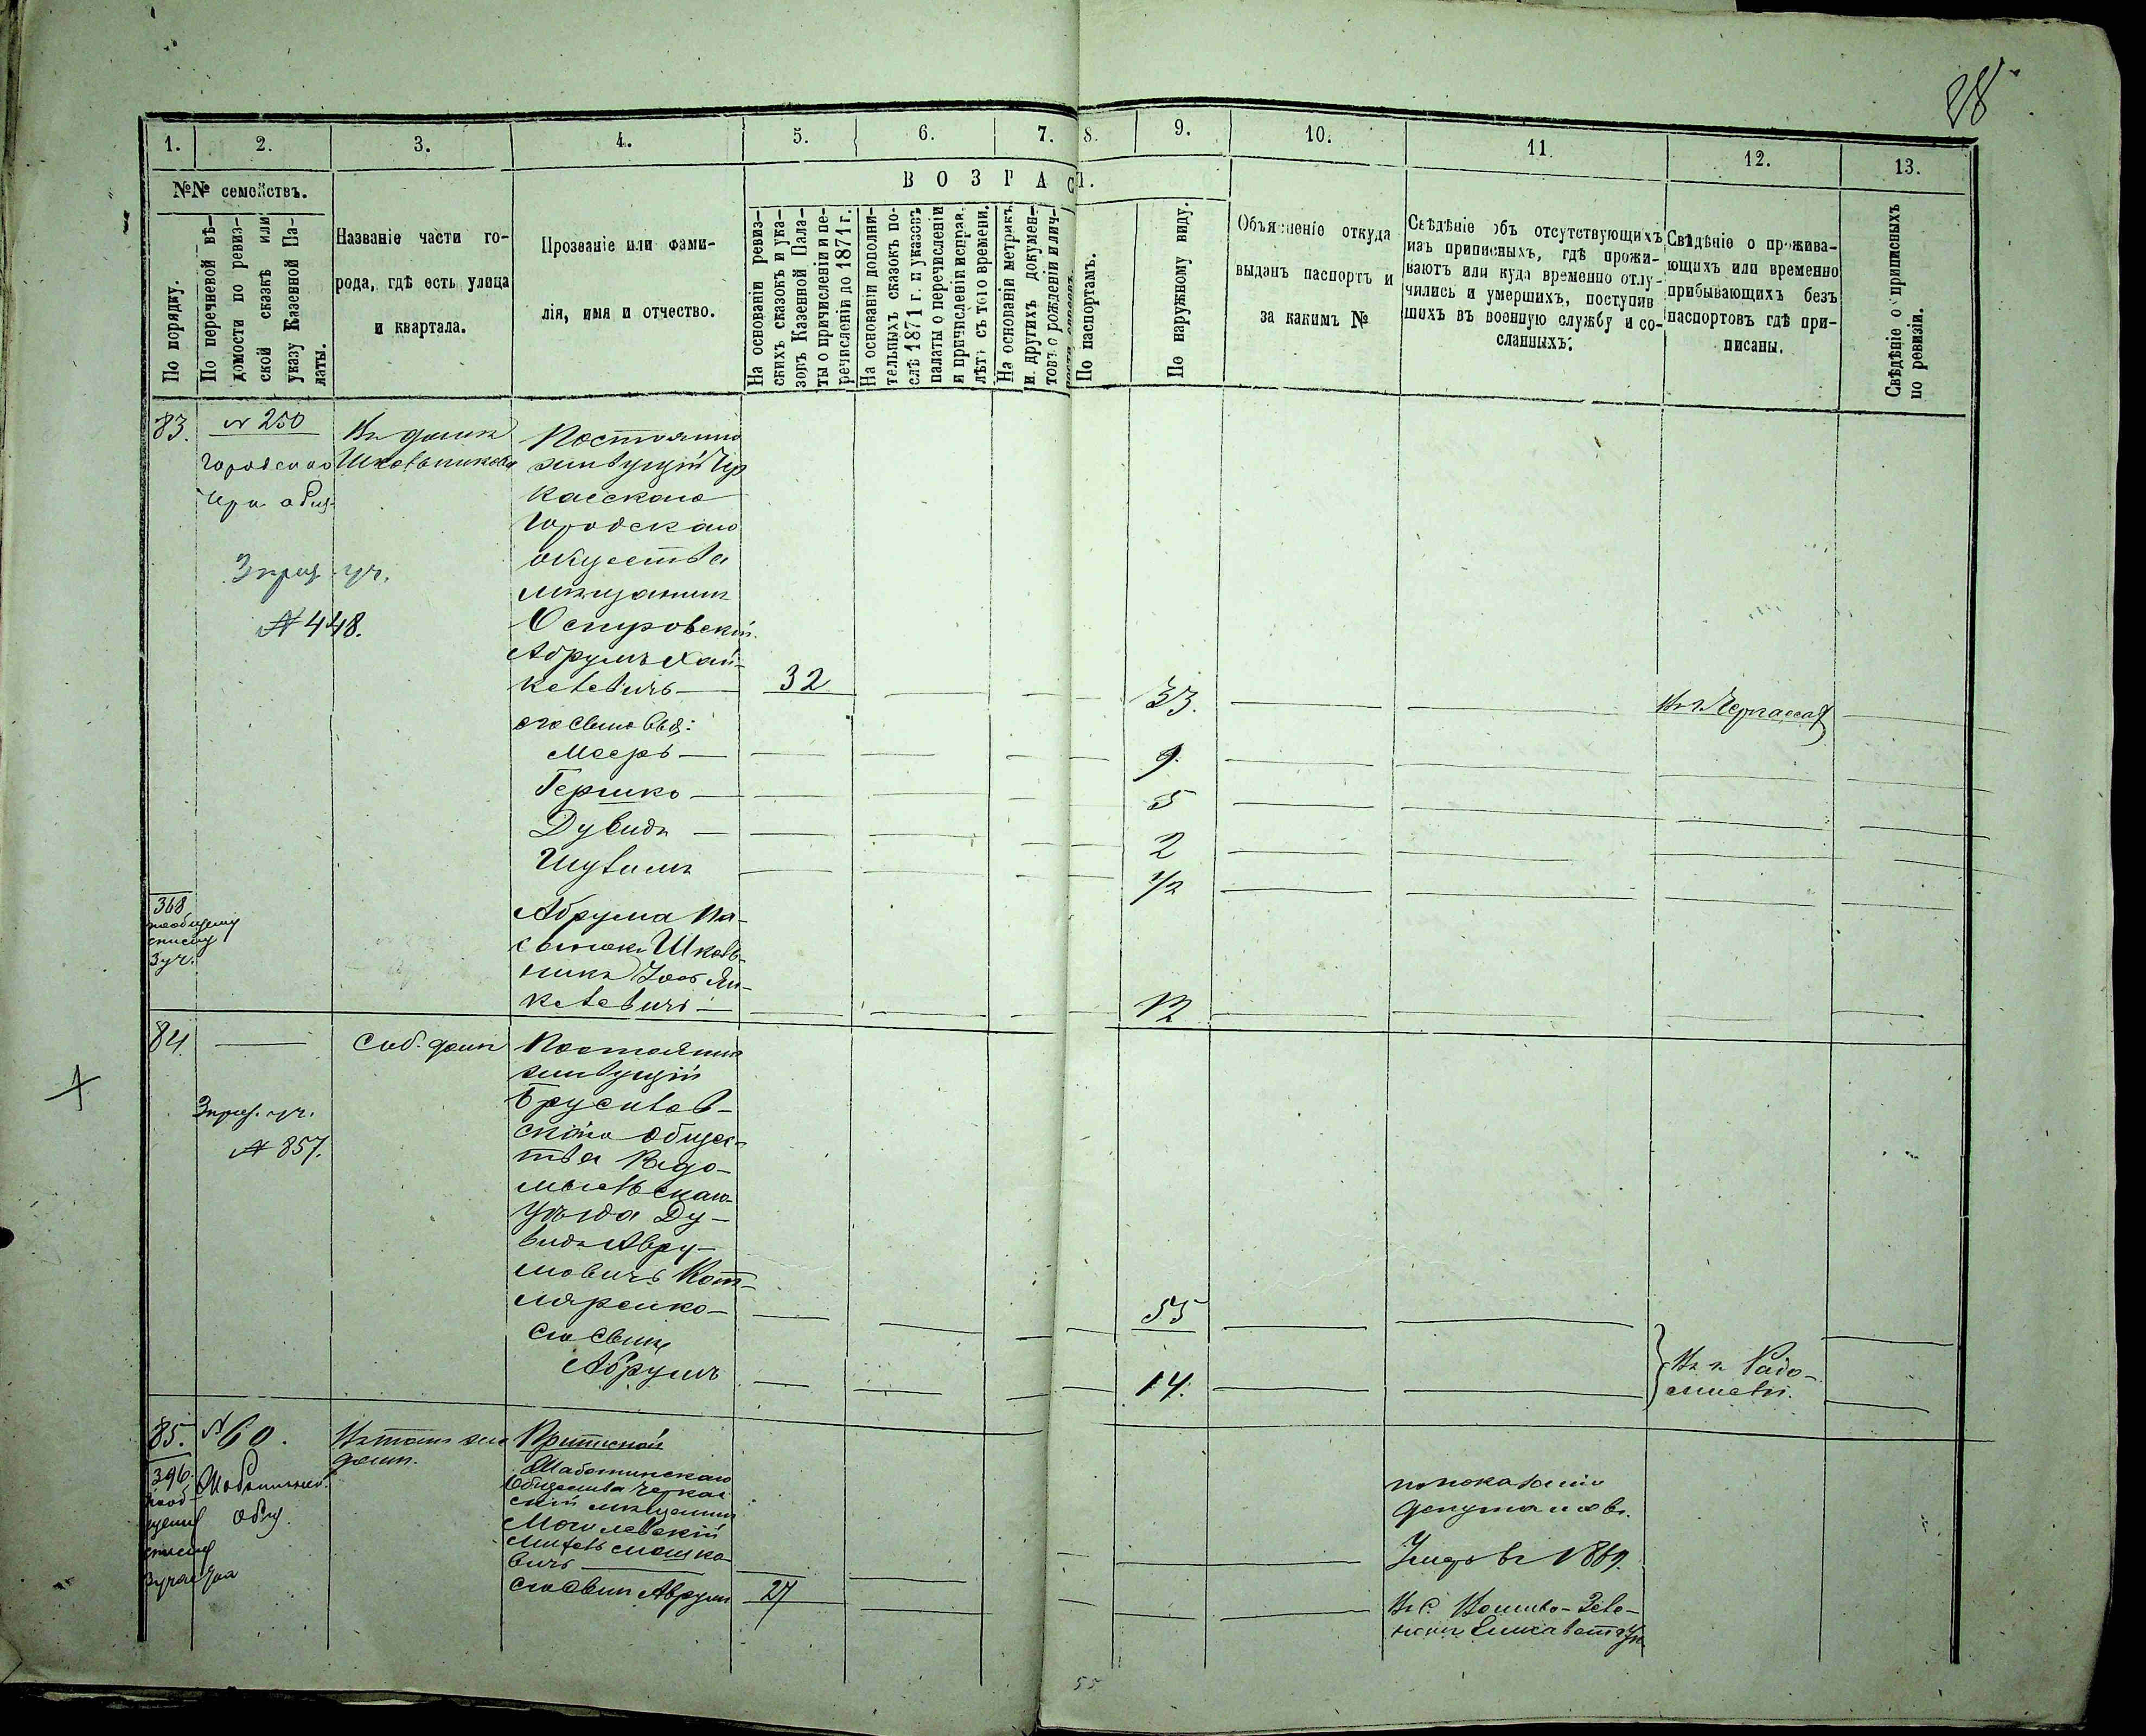 28
1. 2. 3. 4. 5. 6. 7. 8. 9. 10. 11. 12. 13.
№№ семействъ.
По порядку.
По перечневой вѣ-
домости по ревиз-
ской сказкѣ или
указу Казенной Па-
латы.
Названіе части го-
рода, гдѣ есть улица
и квартала.
Прозваніе или фами-
лія, имя и отчество.
ВОЗРАСТ.
На основаніи ревиз-
скихъ сказокъ и ука-
зовъ Казенной Пала-
ты о причисленіи и пе-
речисленіи до 1871 г.
На основаніи дополни-
тельныхъ сказокъ по-
слѣ 1871 г. и указовъ
палаты о перечисленіи
и причисленіи исправ.
лѣтъ съ того времени.
На основаніи метрикъ
и другихъ докумен-
товъ о рожденіи и лич-
По паспортамъ.
По наружному виду.
Объясненіе откуда
выданъ паспортъ и
за какимъ №
Свѣдѣніе объ отсутствующихъ
изъ приписныхъ, гдѣ прожи-
ваютъ или куда временно отлу-
чились и умершихъ, поступив
шихъ въ военную службу и со-
сланныхъ.
Свѣдѣніе о прожива-
ющихъ или временно
прибывающихъ безъ
паспортовъ гдѣ при-
писаны.
Свѣдѣніе о приписныхъ
по ревизіи.
83.
№ 250
Въ домѣ
Школьникова
Постоянно
живущій Чер
касскаго
городскаго
общества
мѣщанинъ
Островскій
Абрумъ Хай-
келевичъ — 32 33. Въ г. Черкассах
его сыновья:
Мееръ — 9.
Гершко — 5
Дувидъ — 2
Шулимъ 1/2
№ 448.
368
пообщему
списку
3 уч.
Абрума па-
сынокъ Школь-
никъ Іось Ян-
келевичъ — 12
84.
Соб. домъ
№ 857.
Постоянно
живущій
Брусилов-
скаго общес-
тва Радо-
мысльскаго
уѣзда Ду-
видъ Авру-
мовичъ Кот-
ляренко — 55
его сынъ
Абрумъ 14.
Въ г. Радо-
мыслѣ.
85. № 60.
396
домѣ.
Приписной
Шаболинскаго
общества Черкас
скій мѣщанинъ
Могилевскій
Мошко
вичъ
его сынъ Аврумъ 27
по показанію
депутатовъ.
Умеръ въ 1869.
55